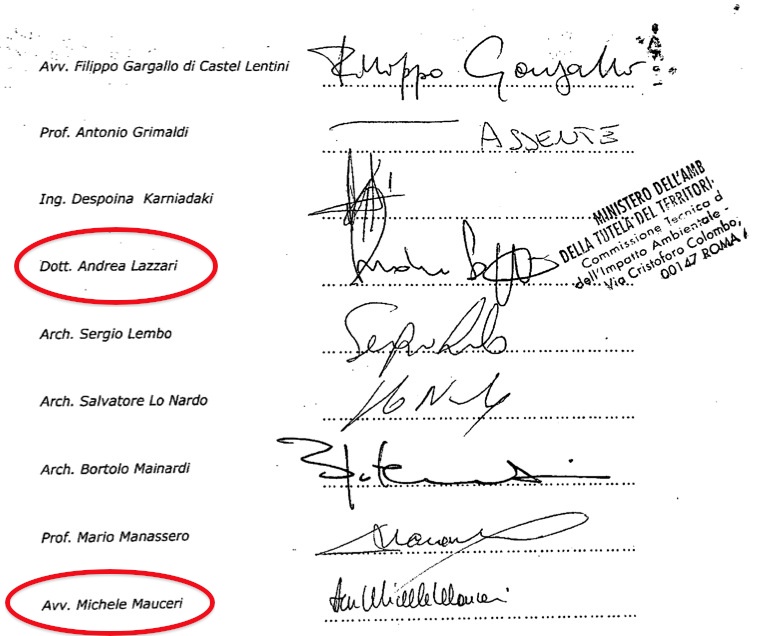 Avv. Filippo Gargallo di Castel Lentini Filippo Gargallo
Prof. Antonio Grimaldi ASSENTE
Ing. Despoina Karniadaki
MINISTERO DELL'AMB
DELLA TUTELA DEL TERRITORI
Commissione Tecnica d
dell'Impatto Ambientale -
Via Cristoforo Colombo,
00147 ROMA
Dott. Andrea Lazzari Andrea
Arch. Sergio Lembo Sergio
Arch. Salvatore Lo Nardo
Arch. Bortolo Mainardi
Prof. Mario Manassero
Avv. Michele Mauceri Avv Michele Mauceri